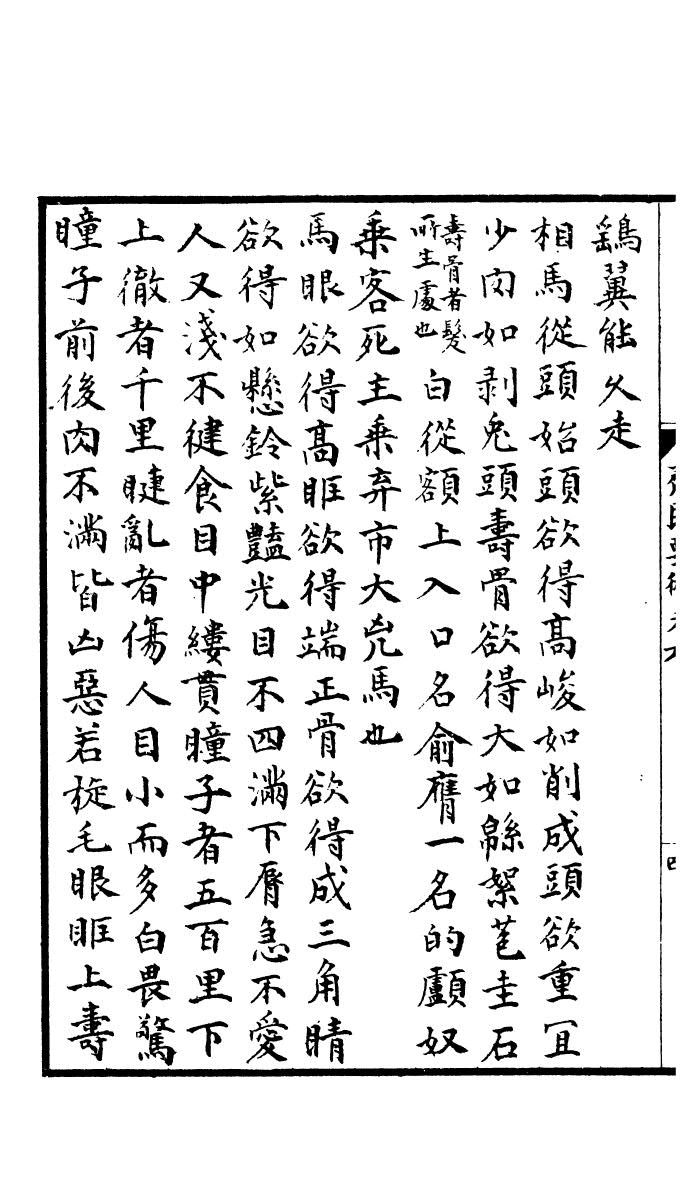 鷂翼能久走
相馬從頭始頭欲得高峻如削成頭欲重冝
少肉如剥兎頭壽骨欲得大如緜絮苞圭石
壽骨者髮所生處也白從額上入口名俞膺一名的顱奴
乗客死主乗弃市大兇馬也
馬眼欲得髙眶欲得端正骨欲得成三角睛
欲得如懸鈴紫豔光目不四滿下脣急不愛
人又淺不徤食目中縷貫瞳子者五百里下
上徹者千里睫亂者傷人目小而多白畏驚
瞳子前後肉不滿皆凶惡若旋毛眼眶上壽